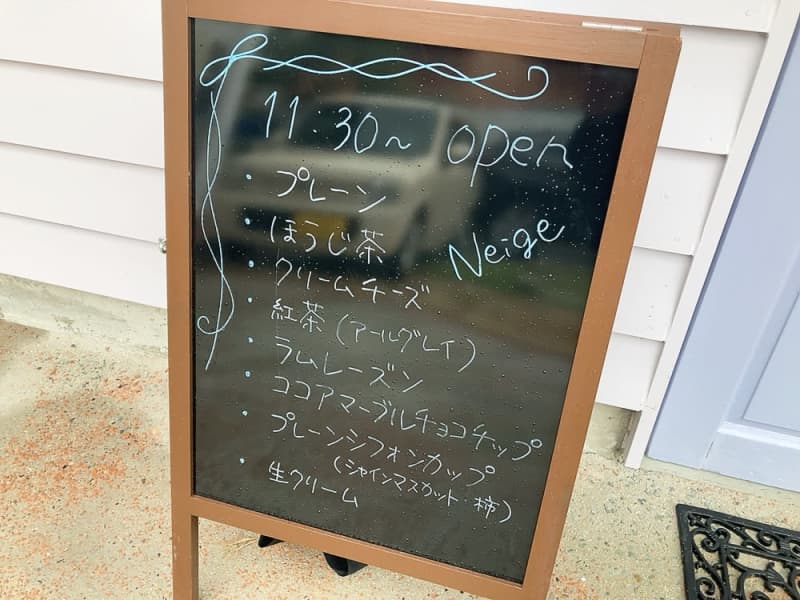 11.30～ open
・プレーン
・ほうじ茶
Neige
・クリームチーズ
・紅茶(アールグレイ)
・ラムレーズン
・ココアマーブルチョコチップ
・プレーンシフォンカップ
(シャインマスカット・柿)
・生クリーム